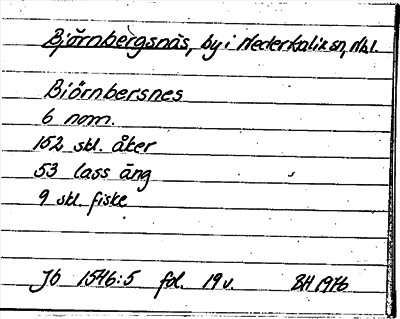 Björnbergsnäs, by i Nederkalix sn, Nbl.
Biörnbersnes
6 nom.
152 skl. åker
53 lass äng
9 skl. fiske
JÖ 1546:5 fol. 19 v. BH 1976